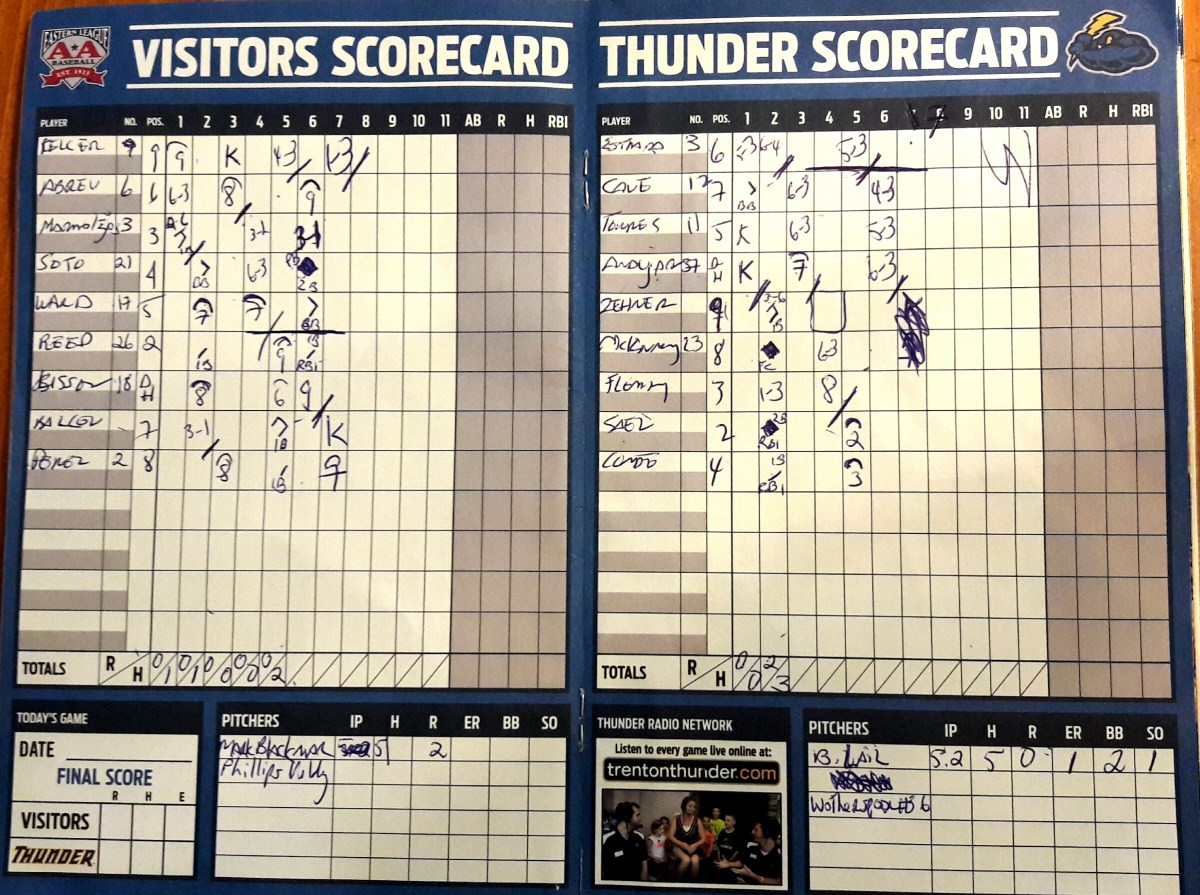 EASTERN LEAGUE
AA
BASEBALL
EST. 1923
VISITORS SCORECARD
PLAYER NO. POS. 1 2 3 4 5 6 7 8 9 10 11 AB R H RBI
9 9 9 K 4-3 K3
ABREU 6 6 6-3 8 9
3 3 3-1 3-1
SOTO 21 4 BB 6-3 2B
WARD 17 5 7 7 BB
REED 26 2 1B 9 1B RBI
BISSON 18 DH 8 6 9
7 3-1 1B K
PEREZ 2 8 8 1B 9
TOTALS R H 0 1 0 1 0 0 0 0 0 2
TODAY'S GAME
DATE
FINAL SCORE
R H E
VISITORS
THUNDER
PITCHERS IP H R ER BB SO
Mark Blackmar 5 2
Phillips
THUNDER SCORECARD
PLAYER NO. POS. 1 2 3 4 5 6 7 9 10 11 AB R H RBI
ESTRADA 3 6 6-4 5-3
CAVE 12 7 BB 6-3 4-3
TORRES 11 5 K 6-3 5-3
ANDUJAR 37 DH K 7 6-3
ZEHNER 9 3-6 1B
McKinney 23 8 FC 6-3
FLEMING 3 1-3 8
SAEZ 2 2B RBI 2
CONDE 4 1B RBI 3
TOTALS R H 0 0 2 3
THUNDER RADIO NETWORK
Listen to every game live online at:
trentonthunder.com
PITCHERS IP H R ER BB SO
B. LAIL 5.2 5 0 1 2 1
Wotherspoon